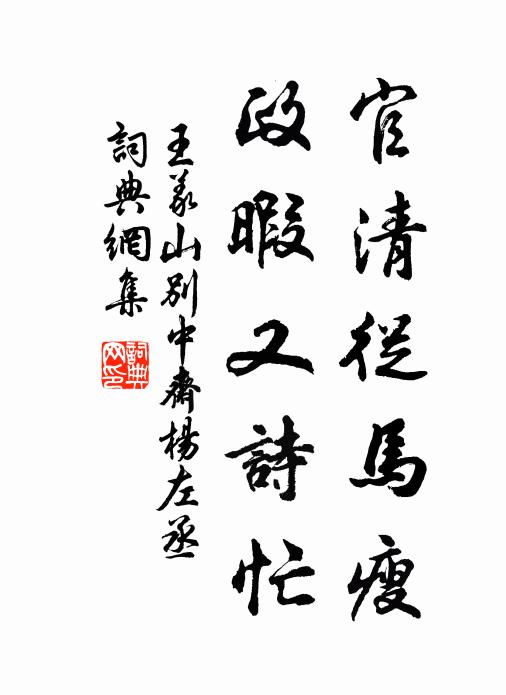 官清從馬瘦
政暇又詩忙
王義山別中齋楊左丞
詞典網集
詞典
网印